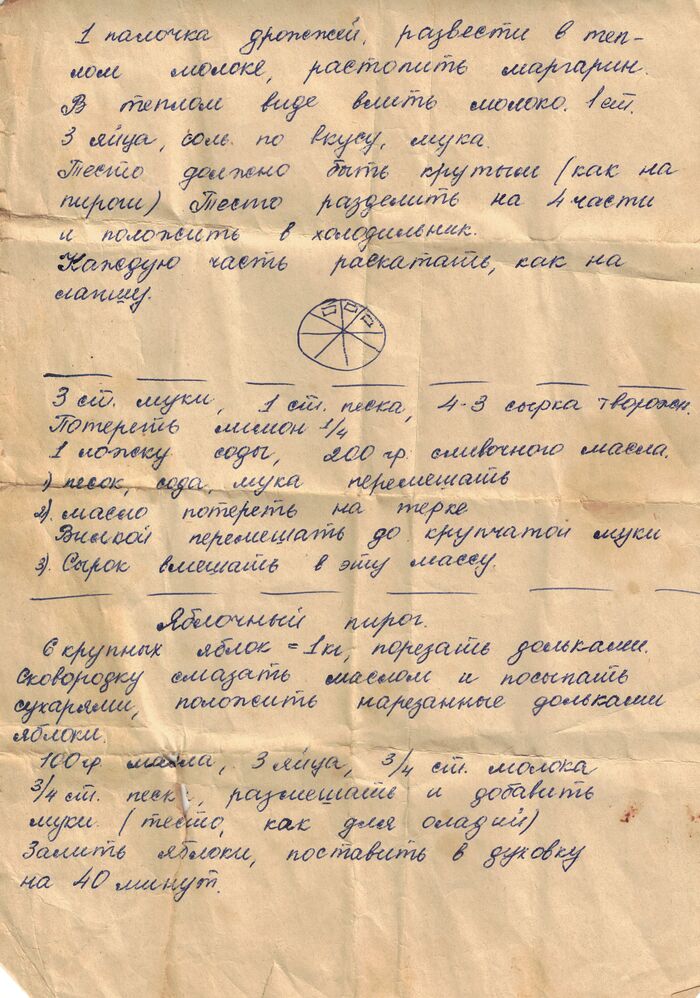 1 палочка дрожжей, развести в теп-
лом молоке, растопить маргарин.
В теплом виде влить молоко. 1 ст.
3 яйца, соль по вкусу, мука.
Тесто должно быть крутым (как на
пироги) Тесто разделить на 4 части
и положить в холодильник.
Каждую часть раскатать, как на
лапшу.
3 ст. муки, 1 ст. песка, 4-3 сырка творожн.
Потереть лимон 1/4
1 ложку соды, 200 гр. сливочного масла.
1) песок, сода, мука перемешать
2). масло потереть на терке
Вилкой перемешать до крупчатой муки
3). Сырок вмешать в эту массу.
Яблочный пирог.
6 крупных яблок = 1 кг, порезать дольками.
Сковородку смазать маслом и посыпать
сухарями, положить нарезанные дольками
яблоки.
100 гр. масла, 3 яйца, 3/4 ст. молока
3/4 ст. песка, размешать и добавить
муки (тесто, как для оладий)
Залить яблоки, поставить в духовку
на 40 минут.